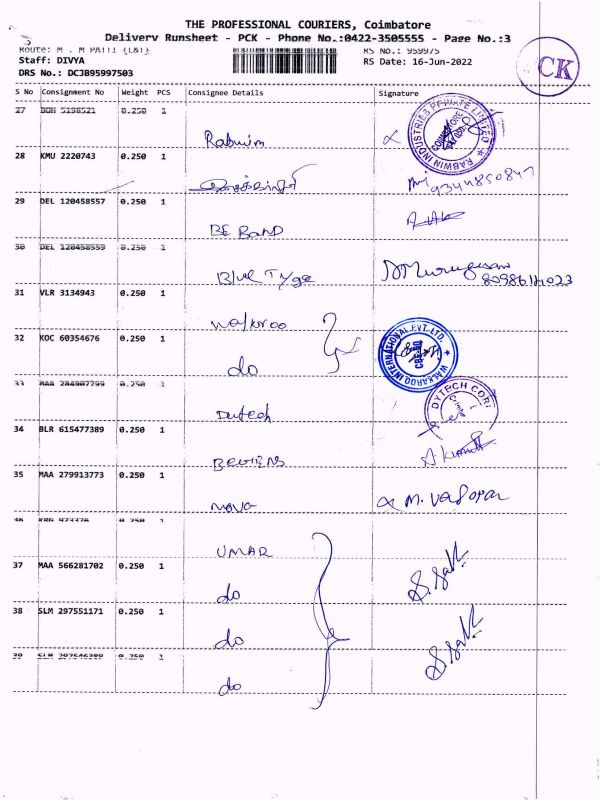 THE PROFESSIONAL COURIERS, Coimbatore
Delivery Runsheet - PCK - Phone No.:0422-3505555 - Page No.:3
Route: M . M PATTI {L&T} RS No.: 959975
Staff: DIVYA RS Date: 16-Jun-2022
DRS No.: DCJB95997503
CK
S No Consignment No Weight PCS Consignee Details Signature
27 BOM 5198521 0.250 1
Rabwin
RABWIN INDUSTRIES PRIVATE LIMITED
COIMBATORE
28 KMU 2220743 0.250 1
29 DEL 120458557 0.250 1
BE BAND
30 DEL 120458559 0.250 1
Blue Tyge
31 VLR 3134943 0.250 1
Walkroo
32 KOC 60354676 0.250 1
do
WALKAROO INTERNATIONAL PVT. LTD.
33 MAA 0.250 1
Dytech
DYTECH CORI
34 BLR 615477389 0.250 1
35 MAA 279913773 0.250 1
nova
M.
36 0.250 1
UMAR
37 MAA 566281702 0.250 1
do
38 SLM 297551171 0.250 1
do
39 SLM 0.250 1
do